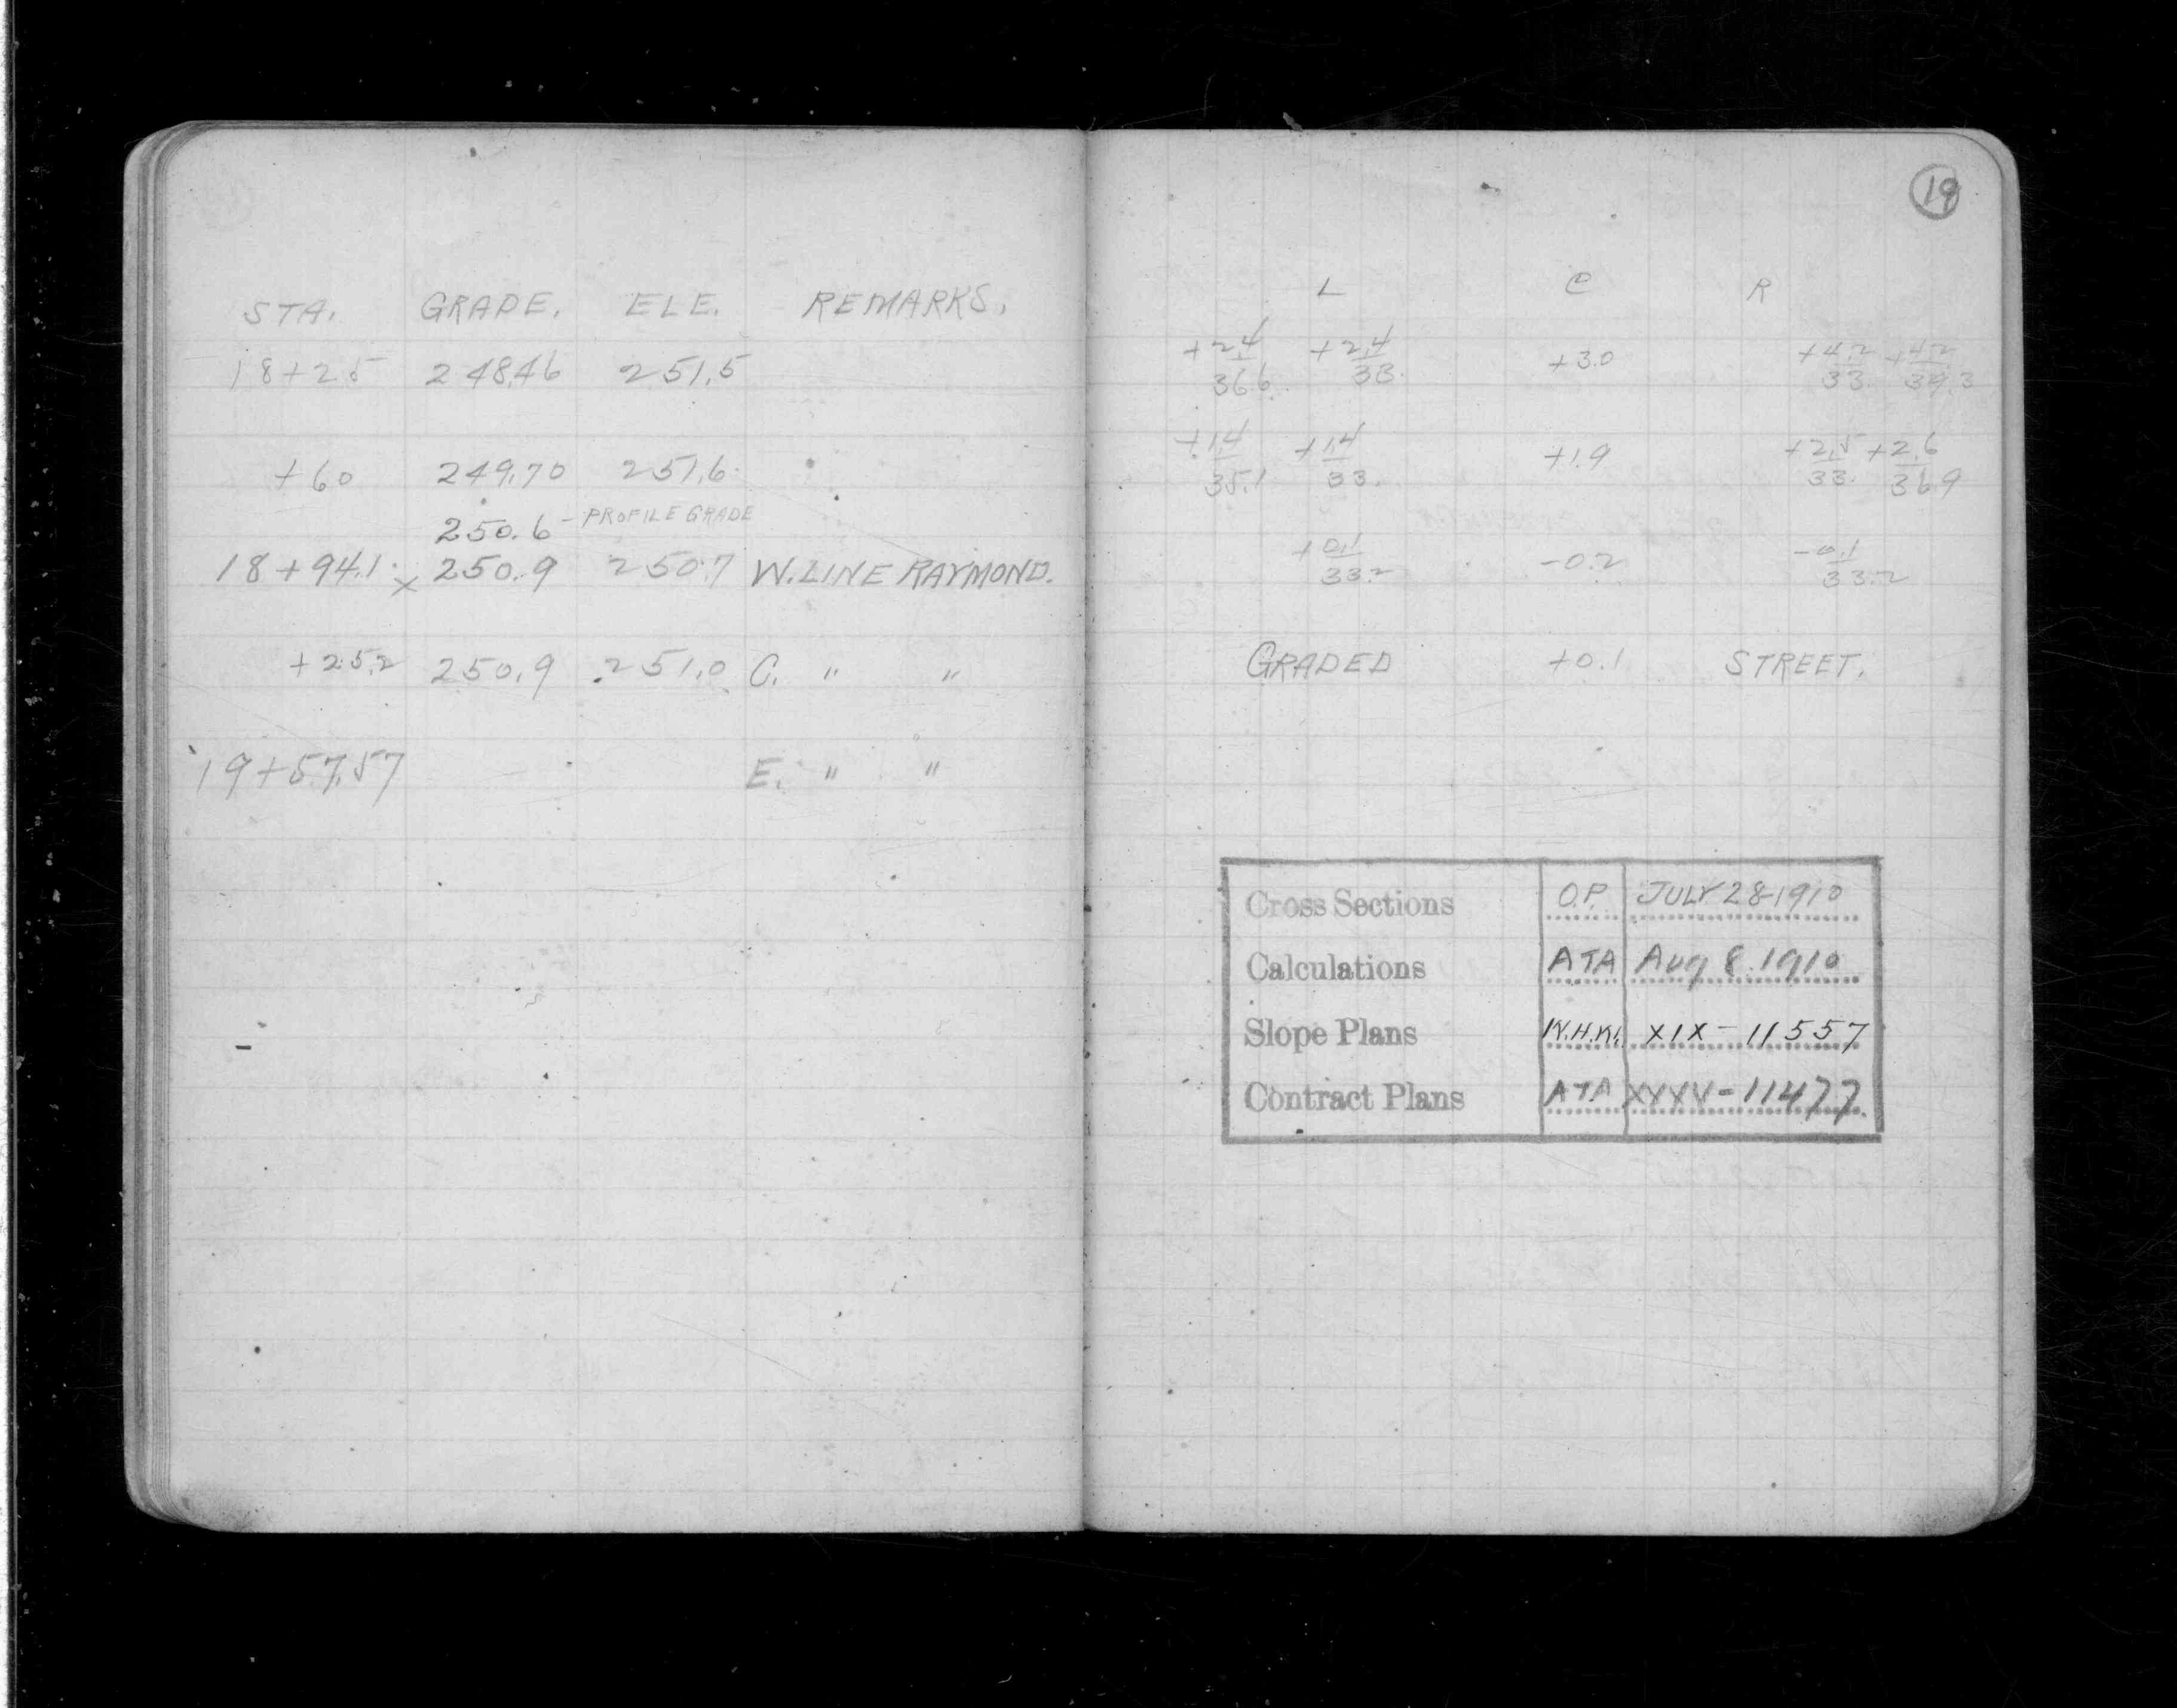 STA. GRADE. ELE. REMARKS.
18+25 248.46 251.5
+60 249.70 251.6
250.6 - PROFILE GRADE
18+94.1 x 250.9 250.7 W.LINE RAYMOND.
+25.2 250.9 251.0 C. " "
19+57.57 E. " "
19
L C R
+2.4/36.6 +2.4/33. +3.0 +4.2/33. +4.2/39.3
+1.4/35.1 +1.4/33. +1.9 +2.5/33. +2.6/36.9
+0.1/33.2 -0.2 -0.1/33.2
GRADED +0.1 STREET.
Cross Sections O.P. JULY 28-1910
Calculations ATA Aug 8. 1910
Slope Plans K.H.K. XIX - 11557
Contract Plans ATA XXXV - 11477.